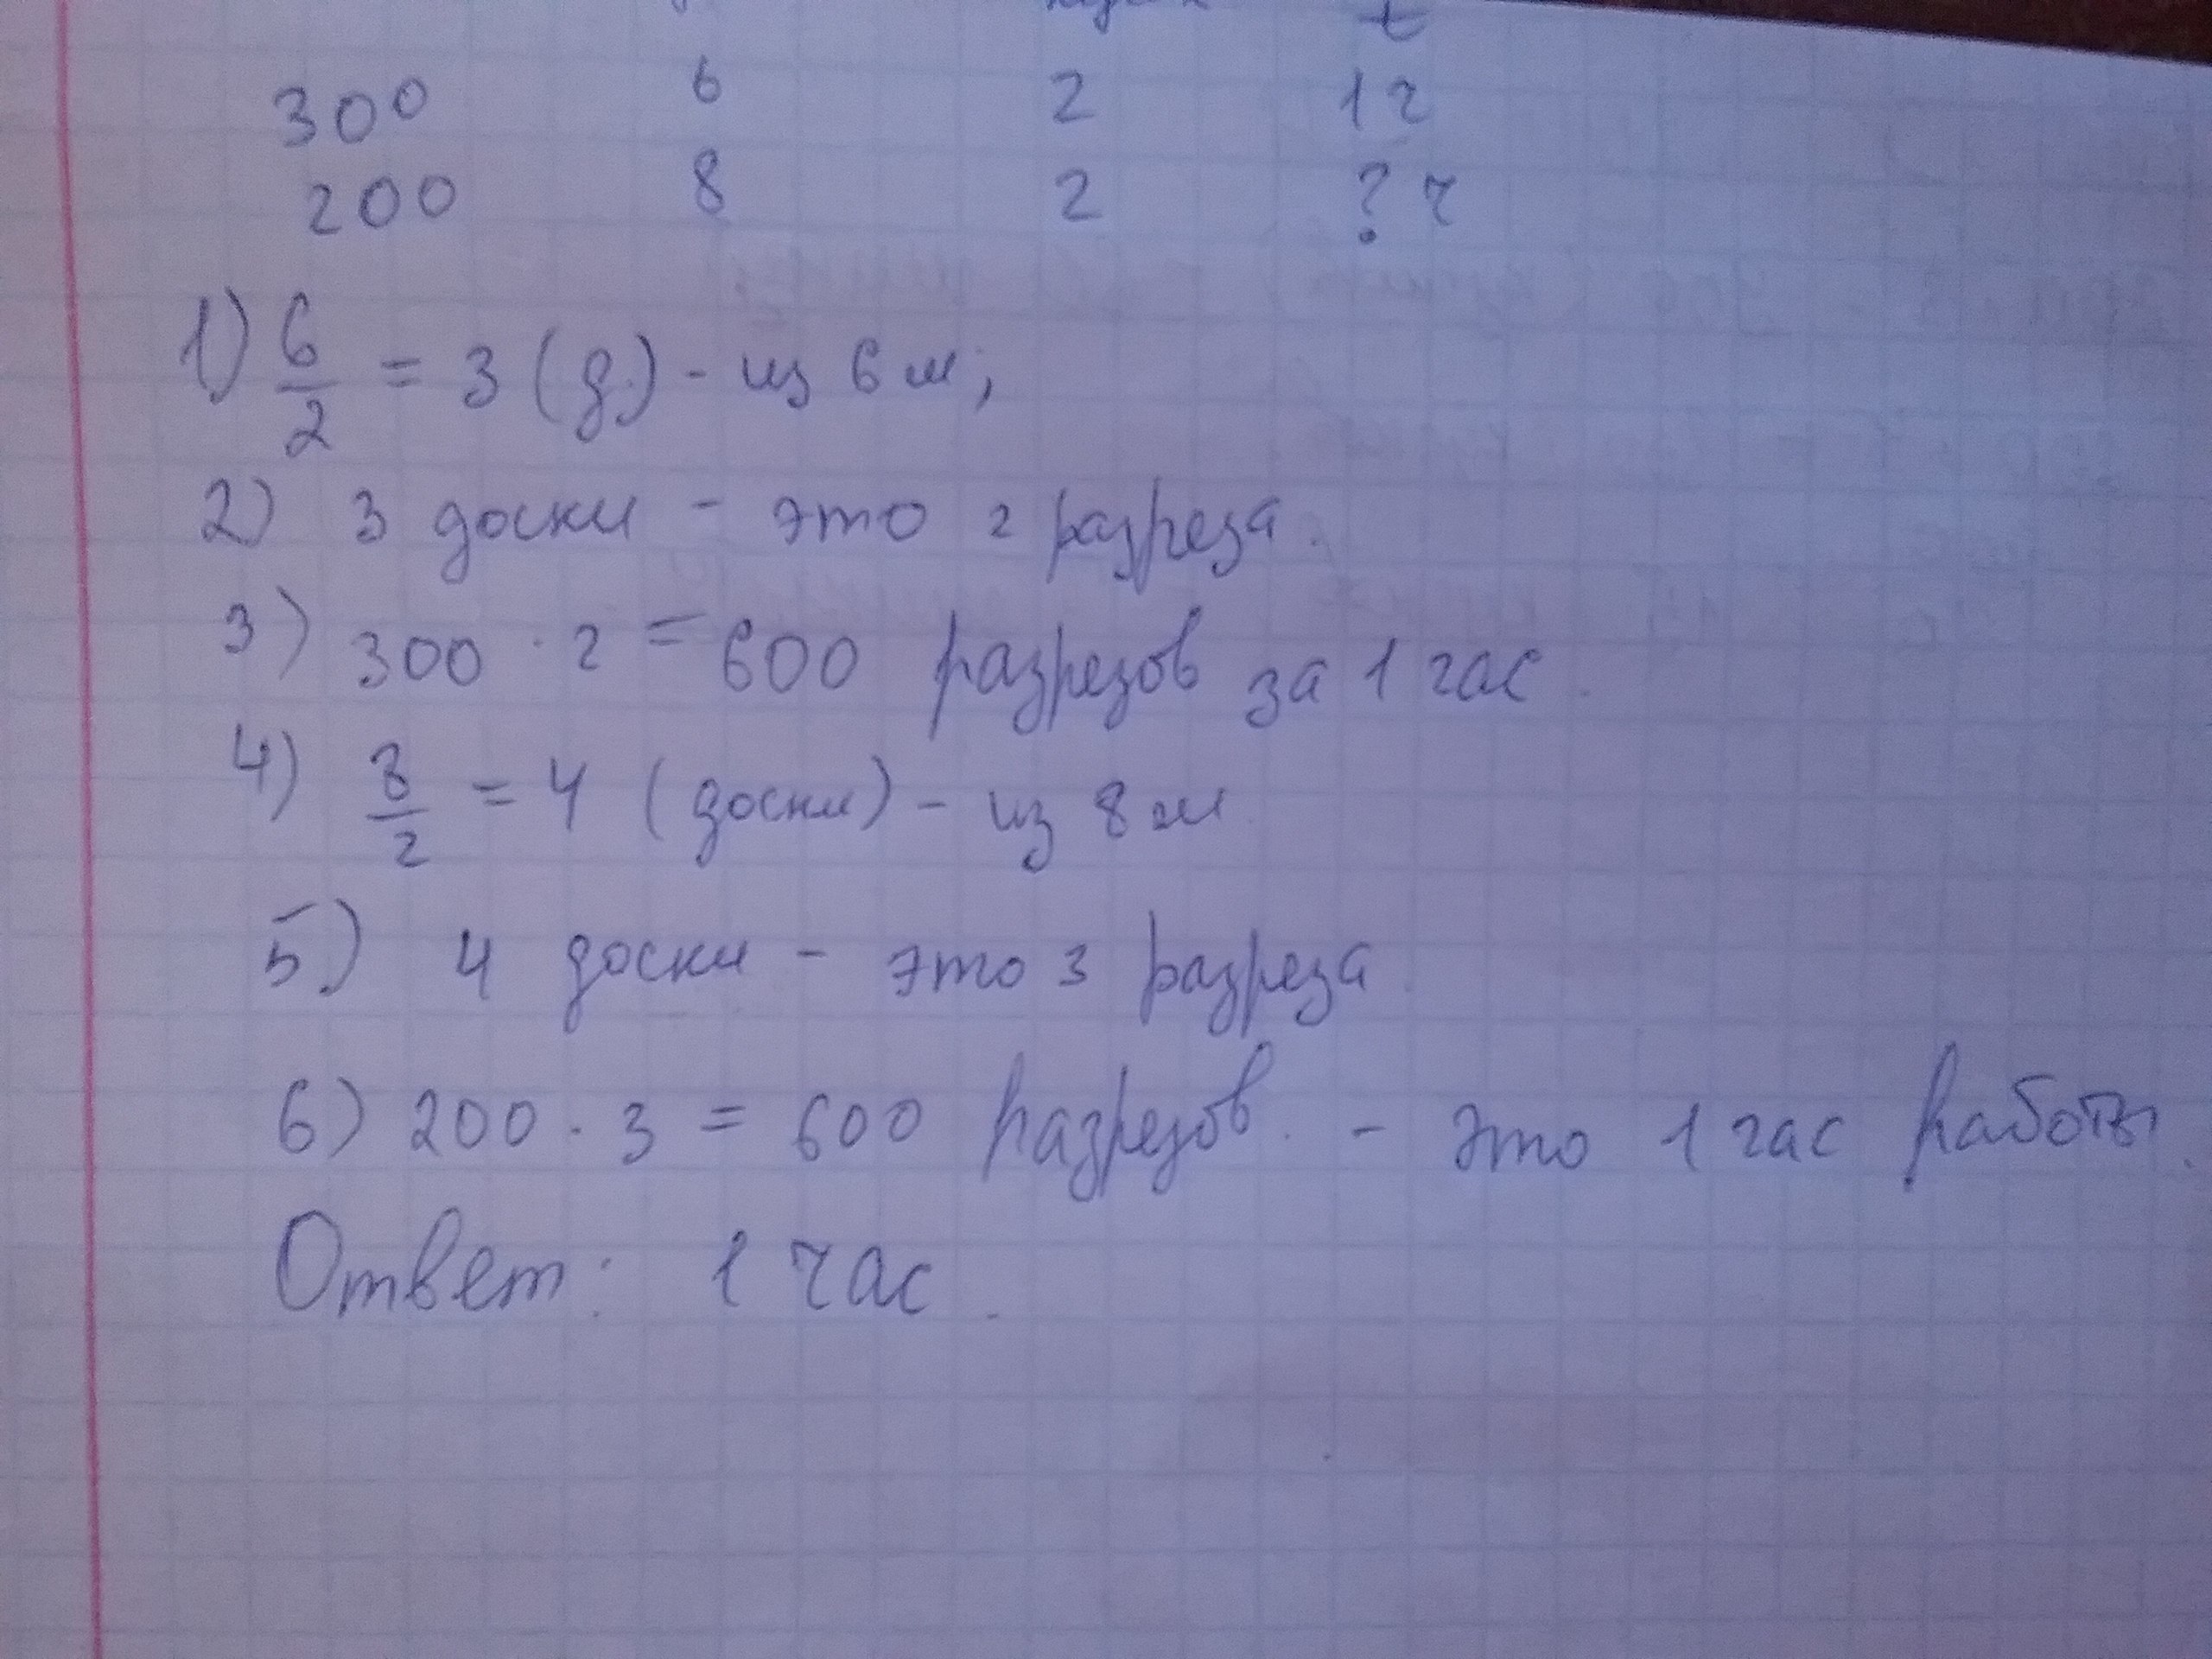 t
300 6 2 1 ч
200 8 2 ? ч
1) 6/2 = 3 (д.) - из 6 м;
2) 3 доски - это 2 разреза.
3) 300 · 2 = 600 разрезов за 1 час.
4) 8/2 = 4 (доски) - из 8 м
5) 4 доски - это 3 разреза.
6) 200 · 3 = 600 разрезов. - это 1 час работы.
Ответ: 1 час.